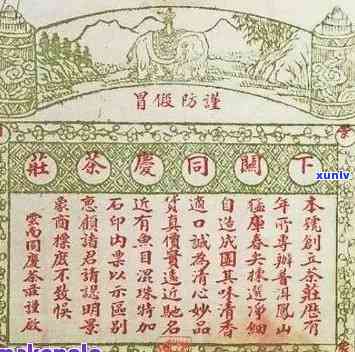 謹防假冒
下關同慶茶莊
本號創立茶莊歷有
年所專辦普洱鳳山
猛庫春尖揀選淨細
自造成團其味清香
適口誠為清心妙品
貨真價實遠近馳名
近有魚目混珠特加
石印內票以示區別
惠顧諸君請認明景
象商標庶不致悞
雲南同慶茶莊謹啟
xunlv